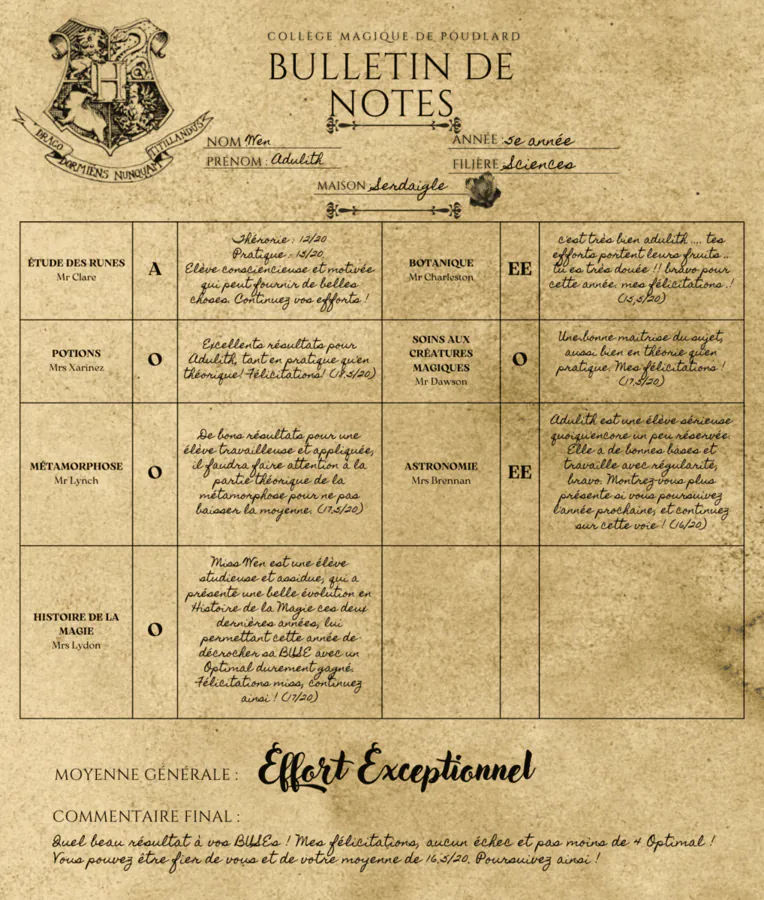 COLLÈGE MAGIQUE DE POUDLARD
BULLETIN DE
NOTES
DRACO DORMIENS NUNQUAM TITILLANDUS
NOM Wen
ANNÉE : 5e année
PRÉNOM : Adulith
FILIÈRE Sciences
MAISON Serdaigle
ÉTUDE DES RUNES
Mr Clare
A
Thérorie : 12/20
Pratique : 15/20
Elève consciencieuse et motivée
qui peut fournir de belles
choses. Continuez vos efforts !
BOTANIQUE
Mr Charleston
EE
c'est très bien adulith .... tes
efforts portent leurs fruits ..
tu es très douée !! bravo pour
cette année. mes félicitations .!
(15,5/20)
POTIONS
Mrs Xarinez
O
Excellents résultats pour
Adulith, tant en pratique qu'en
théorique! Félicitations! (18,5/20)
SOINS AUX
CRÉATURES
MAGIQUES
Mr Dawson
O
Une bonne maitrise du sujet,
aussi bien en théorie qu'en
pratique. Mes félicitations !
(17,5/20)
MÉTAMORPHOSE
Mr Lynch
O
De bons résultats pour une
élève travailleuse et appliquée,
il faudra faire attention à la
partie théorique de la
métamorphose pour ne pas
baisser la moyenne. (17,5/20)
ASTRONOMIE
Mrs Brennan
EE
Adulith est une élève sérieuse
quoiqu'encore un peu réservée.
Elle a de bonnes bases et
travaille avec régularité,
bravo. Montrez-vous plus
présente si vous poursuivez
l'année prochaine, et continuez
sur cette voie ! (16/20)
HISTOIRE DE LA
MAGIE
Mrs Lydon
O
Miss Wen est une élève
studieuse et assidue, qui a
présenté une belle évolution en
Histoire de la Magie ces deux
dernières années, lui
permettant cette année de
décrocher sa BUSE avec un
Optimal durement gagné.
Félicitations miss, continuez
ainsi ! (17/20)
MOYENNE GÉNÉRALE : Effort Exceptionnel
COMMENTAIRE FINAL :
Quel beau résultat à vos BUSEs ! Mes félicitations, aucun échec et pas moins de 4 Optimal !
Vous pouvez être fier de vous et de votre moyenne de 16,5/20. Poursuivez ainsi !